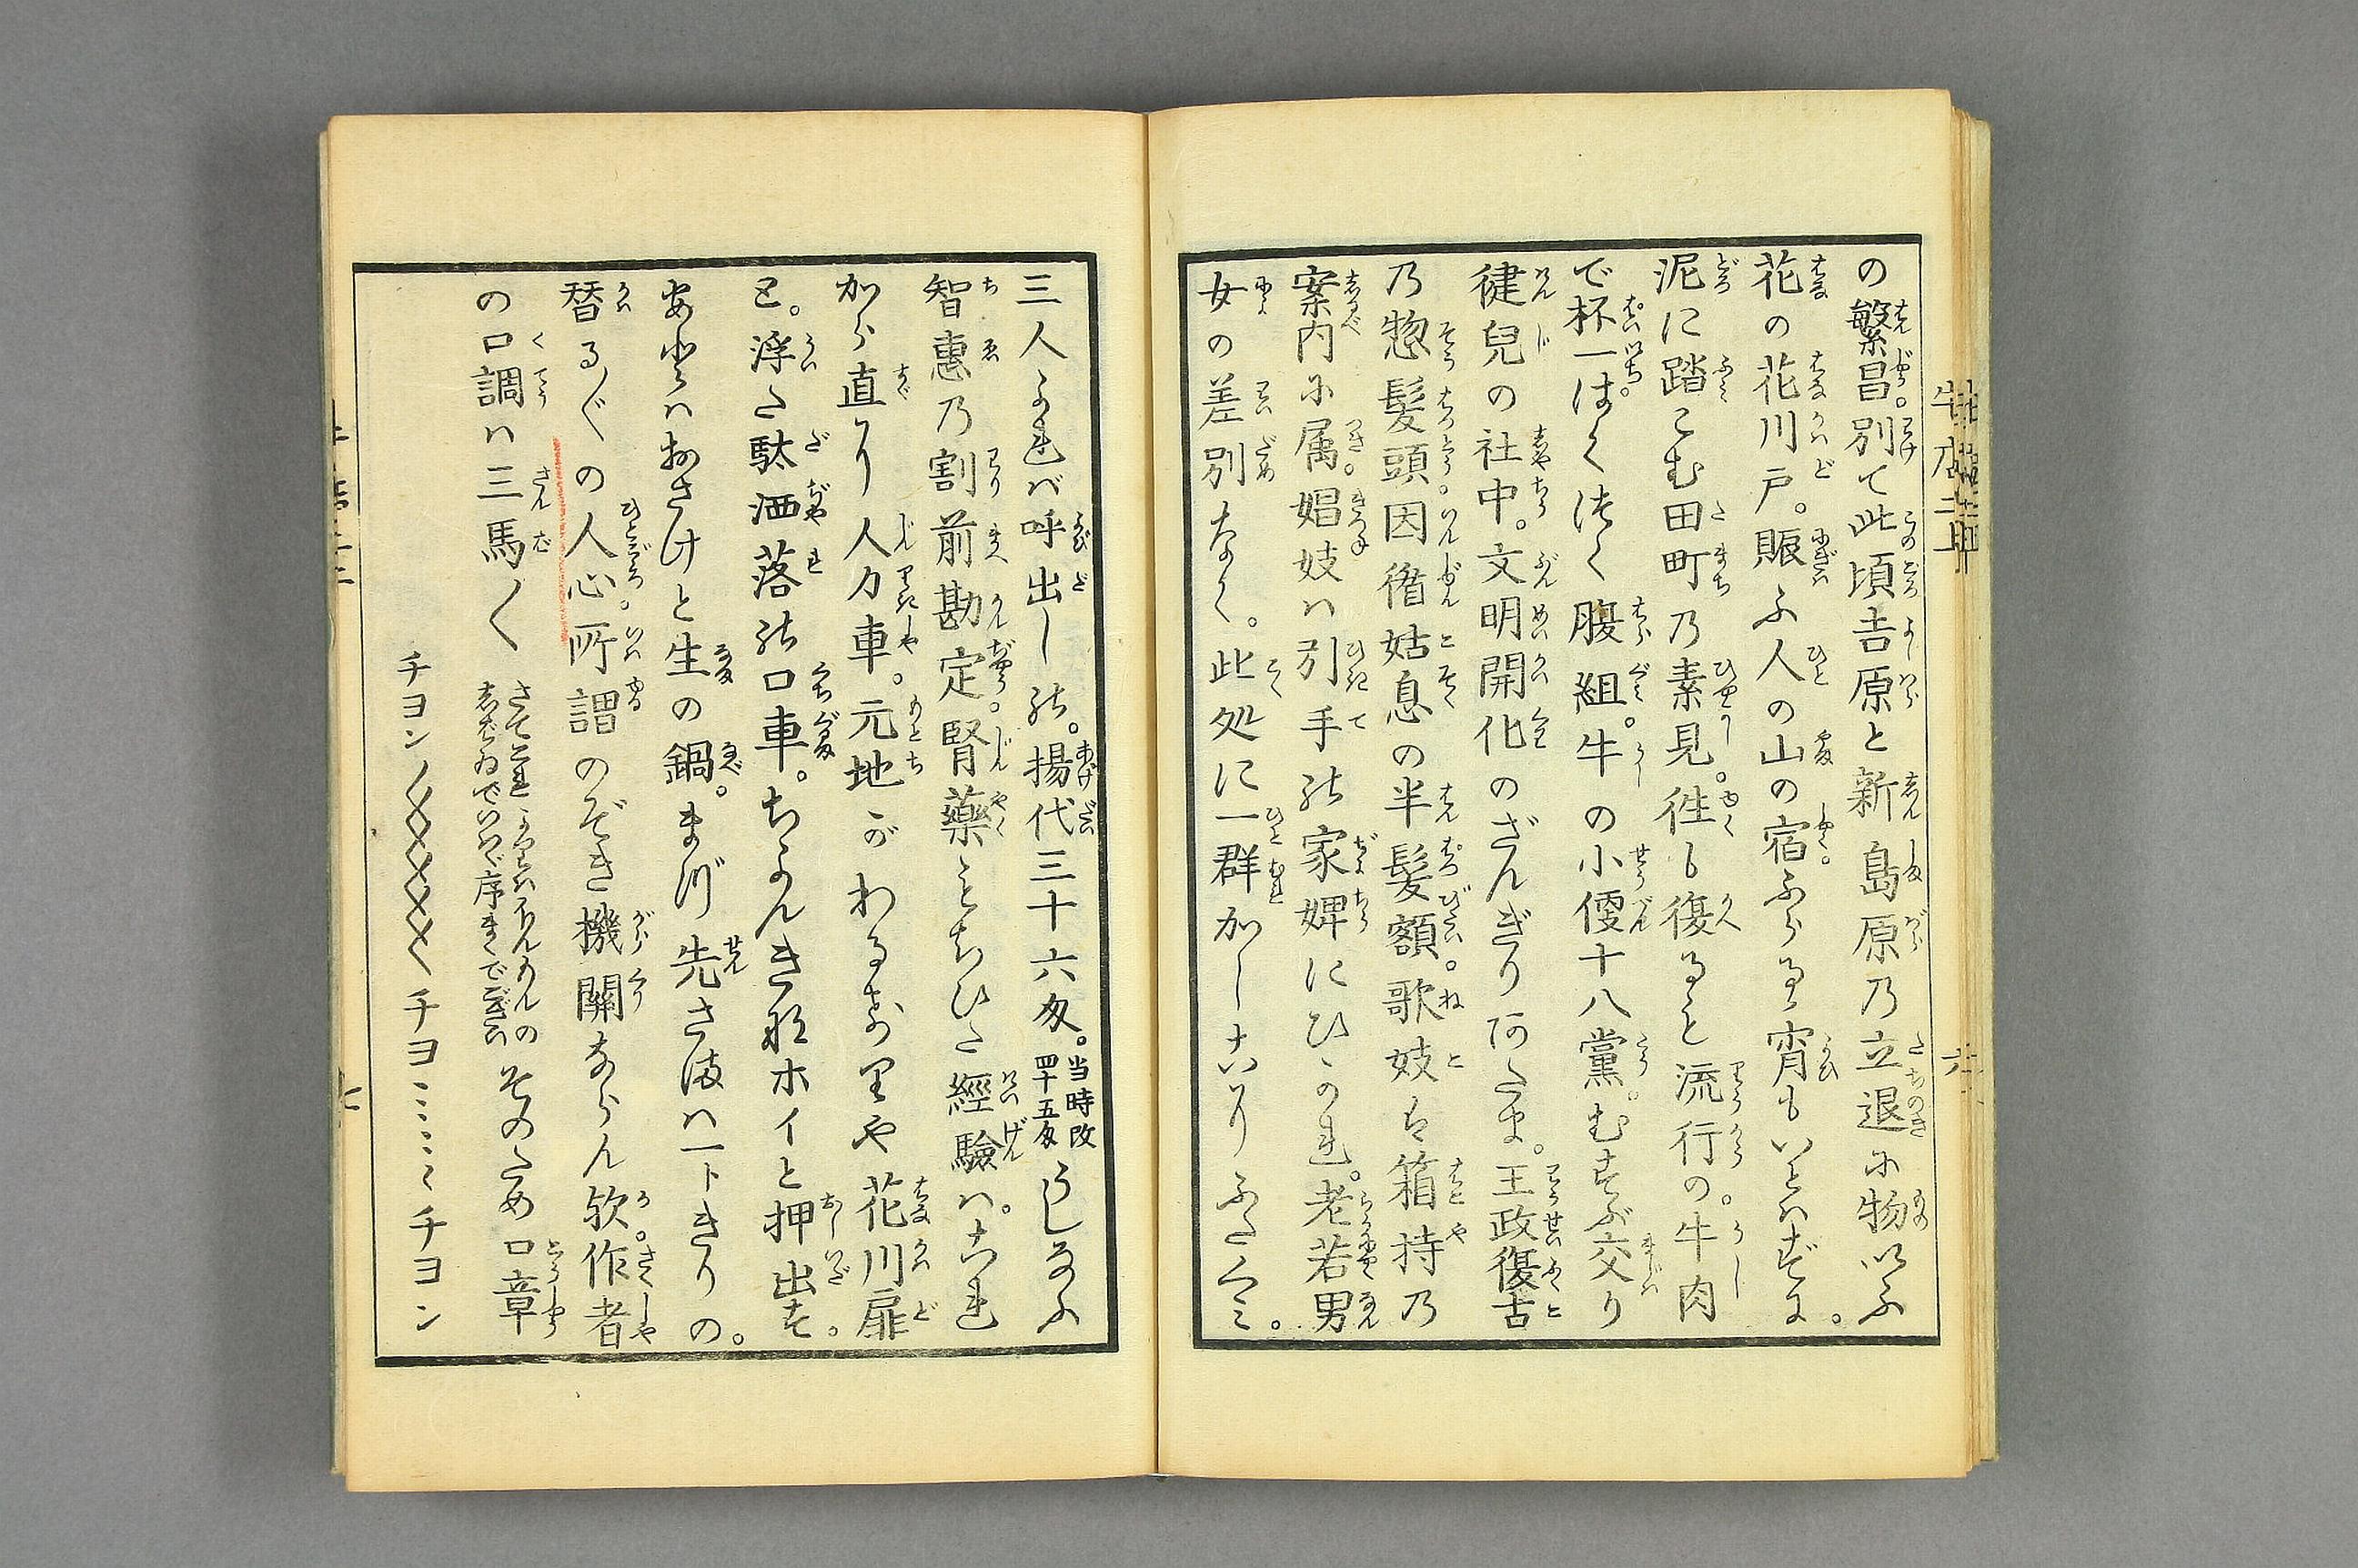 の繁昌。別て此頃吉原と新島原乃立退に物いふ
花の花川戸。賑ふ人の山の宿ふらぬ宵もいとはずに。
泥に踏こむ田町乃素見。徃も復るも流行の。牛肉
で杯一ぱくつく腹組。牛の小便十八黨。むすぶ交り
健兒の社中。文明開化のざんぎりあたま。王政復古
乃惣髪頭。因循姑息の半髪額。歌妓は箱持乃
案内に属。娼妓ハ引手の家婢にひかれ。老若男
女の差別なく。此処に一群かしこに
三人よれバ呼出しの。揚代三十六匁。当時改四十五匁うしなふ
智惠乃割前勘定。腎藥ともちひた經驗ハ。これ
から直り人力車。元地がわるきり花川扉
と。浮た駄洒落の口車。ちよんきなホイと押出す。
あとハおさけと生の鍋。まづ先さまハ一トきりの。
替るぐの人心。所謂のぞき機關ならん欤。作者
の口調ハ三馬〱 さてこれよりハほんもんの しばゐでいハゞ序まくでござい そのため口章
チヨン〱〱〱〱〱チヨミミミミチヨン